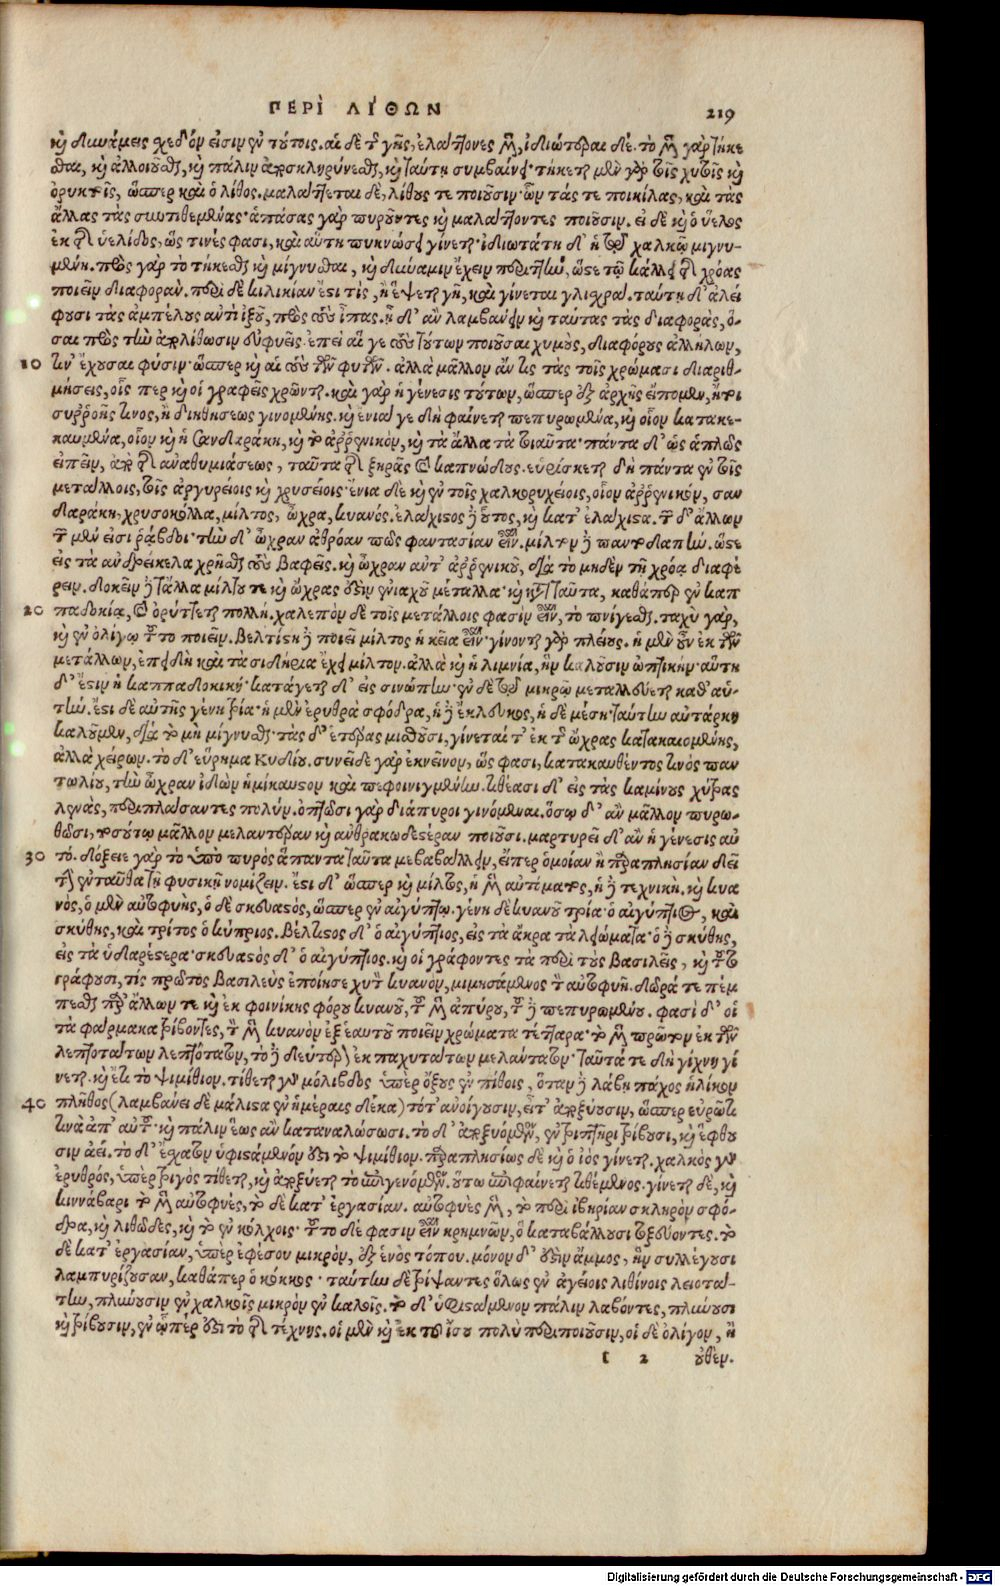 ΠΕΡῚ ΛΊΘΩΝ 219
καὶ δυνάμεις σχεδόν εἰσιν ἐν τούτοις. αἱ δὲ τῆς γῆς, ἐλάττονες μὲν, ἰδιώτεραι δέ. τὸ μὲν γὰρ τήκε
σθαι, καὶ ἀλλοιοῦσθαι, καὶ πάλιν ἀποσκληρύνεσθαι, καὶ ταύτη συμβαίνει· τήκεται μὲν γὰρ τοῖς χυτοῖς καὶ
ὀρυκτοῖς, ὥσπερ καὶ ὁ λίθος. μαλάττεται δὲ, λίθους τε ποιοῦσιν· ὧν τάς τε ποικίλας, καὶ τὰς
ἄλλας τὰς συντιθεμένας· ἁπάσας γὰρ πυροῦντες καὶ μαλάττοντες ποιοῦσιν. εἰ δὲ καὶ ὁ ὕελος
ἐκ τῆς ὑελίδος, ὥς τινές φασι, καὶ αὕτη πυκνώσει γίνεται· ἰδιωτάτη δ' ἡ τῷ χαλκῷ μιγνυ-
μένη. πρὸς γὰρ τὸ τήκεσθαι καὶ μίγνυσθαι, καὶ δύναμιν ἔχειν περιττὴν, ὥστε τῷ κάλλει τῆς χρόας
ποιεῖν διαφοράν. περὶ δὲ κιλικίαν ἔστι τίς, ἣ ἕψεται γῆ, καὶ γίνεται γλισχρά. ταύτῃ δ' ἀλεί
φουσι τὰς ἀμπέλους ἀντὶ ἰξοῦ, πρὸς τοὺς ἶπας. ἦ δ' ἂν λαμβάνειν καὶ ταύτας τὰς διαφορὰς, ὅ-
σαι πρὸς τὴν ἀπολίθωσιν εὐφυεῖς. ἐπεὶ αἵ γε τοὺς τούτων ποιοῦσαι χυμοὺς, διαφόρους ἀλλήλων,
10 τιν' ἔχουσαι φύσιν· ὥσπερ καὶ αἱ τοὺς τῶν φυτῶν. ἀλλὰ μᾶλλον ἄν τις τὰς τοῖς χρώμασι διαριθ-
μήσεις, οἷς περ καὶ οἱ γραφεῖς χρῶνται. καὶ γὰρ ἡ γένεσις τούτων, ὥσπερ ἐξ ἀρχῆς εἴπομεν, ἤτοι
συῤῥοῆς τινος, ἢ διηθήσεως γινομένης. καὶ ἔνια γε δὴ φαίνεται πεπυρωμένα, καὶ οἷον κατακε-
καυμένα, οἷον καὶ ἡ σανδαράκη, καὶ τὸ ἀῤῥενικὸν, καὶ τὰ ἄλλα τὰ τοιαῦτα· πάντα δ' ὡς ἁπλῶς
εἰπεῖν, ἀπὸ τῆς ἀναθυμιάσεως, ταῦτα τῆς ξηρᾶς καὶ καπνώδους. εὑρίσκεται δὴ πάντα ἐν τοῖς
μετάλλοις, τοῖς ἀργυρείοις καὶ χρυσείοις· ἔνια δὲ καὶ ἐν τοῖς χαλκορυχείοις, οἷον ἀῤῥενικόν, σαν
δαράκη, χρυσοκόλλα, μίλτος, ὦχρα, κυανός. ἐλάχιστος δὲ οὗτος, καὶ κατ' ἐλάχιστα. τῶν δ' ἄλλων
τῶν μέν εἰσι ῥάβδοι· τὴν δ' ὦχραν ἀθρόαν πως φαντασίαν εἶναι. μίλτον δὲ παντοδαπήν. ὥστε
εἰς τὰ ἀνδρείκελα χρῆσθαι τοὺς βαφεῖς. καὶ ὦχραν ἀντ' ἀῤῥενικοῦ, διὰ τὸ μηδὲν τῇ χρόᾳ διαφέ
ρειν. δοκεῖν δὲ τἄλλα μίλτου τε καὶ ὤχρας οὖσιν ἐνιαχοῦ μέταλλα· καὶ ταῦτα, καθάπερ ἐν καπ
20 παδοκίᾳ, καὶ ὀρύττεται πολλή. χαλεπὸν δὲ τοῖς μετάλλοις φασὶν εἶναι, τὸ πνίγεσθαι. ταχὺ γὰρ,
καὶ ἐν ὀλίγῳ τοῦτο ποιεῖν. βελτίστη δὲ ποιεῖ μίλτος ἡ κεία εἶναι· γίνονται γὰρ πλείους. ἡ μὲν οὖν ἐκ τῶν
μετάλλων, ἐπειδὴ καὶ τὰ σιδήρεια ἔχει μίλτον. ἀλλὰ καὶ ἡ λιμνία, ἣν καλοῦσιν ὠπικήν· αὕτη
δ' ἔστιν ἡ καππαδοκική· κατάγεται δ' εἰς σινώπην· ἐν δὲ τῷ μικρῷ μεταλλεύεται καθ' αὑ-
τήν. ἔστι δὲ αὐτῆς γένη τρία· ἡ μὲν ἐρυθρὰ σφόδρα, ἡ δὲ ἔκλευκος, ἡ δὲ μέση· ταύτην αὐτάρκη
καλοῦμεν, διὰ τὸ μὴ μίγνυσθαι· τὰς δ' ἑτέρας μιθοῦσι, γίνεται τ' ἐκ τῆς ὤχρας κατακαιομένης,
ἀλλὰ χείρων. τὸ δ' εὕρημα Κυδίου. συνεῖδε γὰρ ἐκεῖνον, ὥς φασι, κατακαυθέντος τινὸς παν
τωλίου, τὴν ὦχραν ἰδὼν ἡμίκαυστον καὶ πεφοινιγμένην. τιθέασι δ' εἰς τὰς καμίνους χύτρας
κενὰς, περιπλάσαντες πολύν. ὀπτῶσι γὰρ διάπυροι γινόμεναι. ὅσῳ δ' ἂν μᾶλλον πυρω-
θῶσι, τοσούτῳ μᾶλλον μελαντέραν καὶ ἀνθρακωδεστέραν ποιοῦσι. μαρτυρεῖ δ' ἂν ἡ γένεσις αὐ
30 τό. δόξειε γὰρ τὸ ὑπὸ πυρὸς ἅπαντα ταῦτα μεβαβάλλειν, εἴπερ ὁμοίαν ἢ παραπλησίαν δεῖ
τὴν ἐνταῦθα τῇ φυσικῇ νομίζειν. ἔστι δ' ὥσπερ καὶ μίλτος, ἡ μὲν αὐτόματος, ἡ δὲ τεχνική. καὶ κυα
νὸς, ὁ μὲν αὐτοφυὴς, ὁ δὲ σκευαστὸς, ὥσπερ ἐν αἰγύπτῳ. γένη δὲ κυανοῦ τρία· ὁ αἰγύπτιος, καὶ
σκύθης, καὶ τρίτος ὁ κύπριος. βέλτιστος δ' ὁ αἰγύπτιος, εἰς τὰ ἄκρατα λειώματα· ὁ δὲ σκύθης,
εἰς τὰ ὑδαρέστερα· σκευαστὸς δ' ὁ αἰγύπτιος. καὶ οἱ γράφοντες τὰ περὶ τοὺς βασιλεῖς, καὶ τοῦτο
γράφουσι, τίς πρῶτος βασιλεὺς ἐποίησε χυτὸν κυανὸν, μιμησάμενος τὸν αὐτοφυῆ. δῶρά τε πέμ
πεσθαι παρ' ἄλλων τε καὶ ἐκ φοινίκης φόρου κυανοῦ, τοῦ μὲν ἀπύρου, τοῦ δὲ πεπυρωμένου. φασὶ δ' οἱ
τὰ φάρμακα τρίβοντες, τὸν μὲν κυανὸν ἐξ ἑαυτοῦ ποιεῖν χρώματα τέτταρα· τὸ μὲν πρῶτον ἐκ τῶν
λεπτοτάτων λεπτότατον, τὸ δὲ δεύτερον ἐκ παχυτάτων μελάντατον· ταῦτά τε δὴ γίχνῃ γί
νεται. καὶ ἔτι τὸ ψιμίθιον. τίθεται γὰρ μόλιβδος ὑπὲρ ὄξους ἐν πίθοις, ὅταν δὲ λάβῃ πάχος ἡλίκον
40 πλῆθος (λαμβάνει δὲ μάλιστα ἐν ἡμέραις δέκα) τότ' ἀνοίγουσιν, εἶτ' ἀποξύουσιν, ὥσπερ εὐρῶτά
τινα ἀπ' αὐτοῦ· καὶ πάλιν ἕως ἂν καταναλώσωσι. τὸ δ' ἀποξυόμενον, ἐν τριπτῆρι τρίβουσι, καὶ ἑφθοῦ
σιν ἀεί. τὸ δ' ἔσχατον ὑφιστάμενόν ἐστι τὸ ψιμίθιον. παραπλησίως δὲ καὶ ὁ ἰὸς γίνεται. χαλκὸς γὰρ
ἐρυθρὸς, ὑπὲρ τρυγὸς τίθεται, καὶ ἀποξύεται τὸ ἐπιγενόμενον. οὕτω ἐπιφαίνεται τιθέμενος. γίνεται δὲ, καὶ
κιννάβαρι τὸ μὲν αὐτοφυὲς, τὸ δὲ κατ' ἐργασίαν. αὐτοφυὲς μὲν, τὸ περὶ ἰβηρίαν σκληρὸν σφό-
δρα, καὶ λιθῶδες, καὶ τὸ ἐν κόλχοις· τοῦτο δέ φασιν εἶναι κρημνῶν, ὃ καταβάλλουσι τοξεύοντες. τὸ
δὲ κατ' ἐργασίαν, ὑπὲρ ἐφέσου μικρὸν, ἐξ ἑνὸς τόπου. μόνον δ' ἐστὶν ἄμμος, ἣν συλλέγουσι
λαμπυρίζουσαν, καθάπερ ὁ κόκκος· ταύτην δὲ τρίψαντες ὅλως ἐν ἀγείοις λιθίνοις λειοτά-
την, πλύνουσιν ἐν χαλκοῖς μικρὸν ἐν καλοῖς. τὸ δ' ὑφιστάμενον πάλιν λαβόντες, πλύνουσι
καὶ τρίβουσιν, ἐν ᾧπέρ ἐστι τὸ τῆς τέχνης. οἱ μὲν καὶ ἐκ τοῦ ἴσου πολὺ περιποιοῦσιν, οἱ δὲ ὀλίγον, ἢ
t 2 οὐθέν.
Digitalisierung gefördert durch die Deutsche Forschungsgemeinschaft - DFG